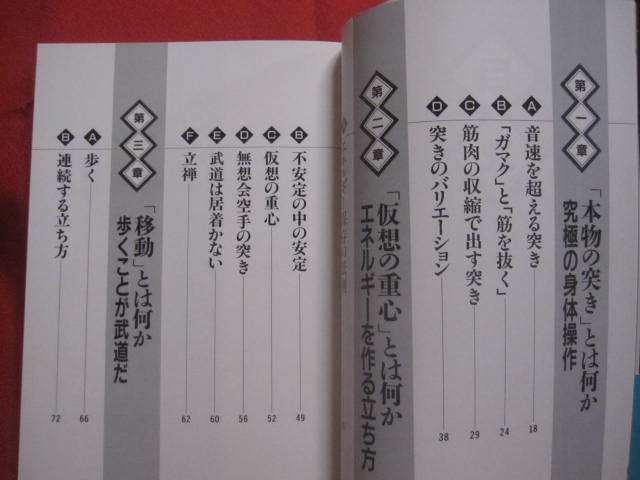 第一章
「本物の突き」とは何か
究極の身体操作
A 音速を超える突き 18
B 「ガマク」と「筋を抜く」 24
C 筋肉の収縮で出す突き 29
D 突きのバリエーション 38
第二章
「仮想の重心」とは何か
エネルギーを作る立ち方
B 不安定の中の安定 49
C 仮想の重心 52
D 無想会空手の突き 56
E 武道は居着かない 60
F 立禅 62
第三章
「移動」とは何か
歩くことが武道だ
A 歩く 66
B 連続する立ち方 72